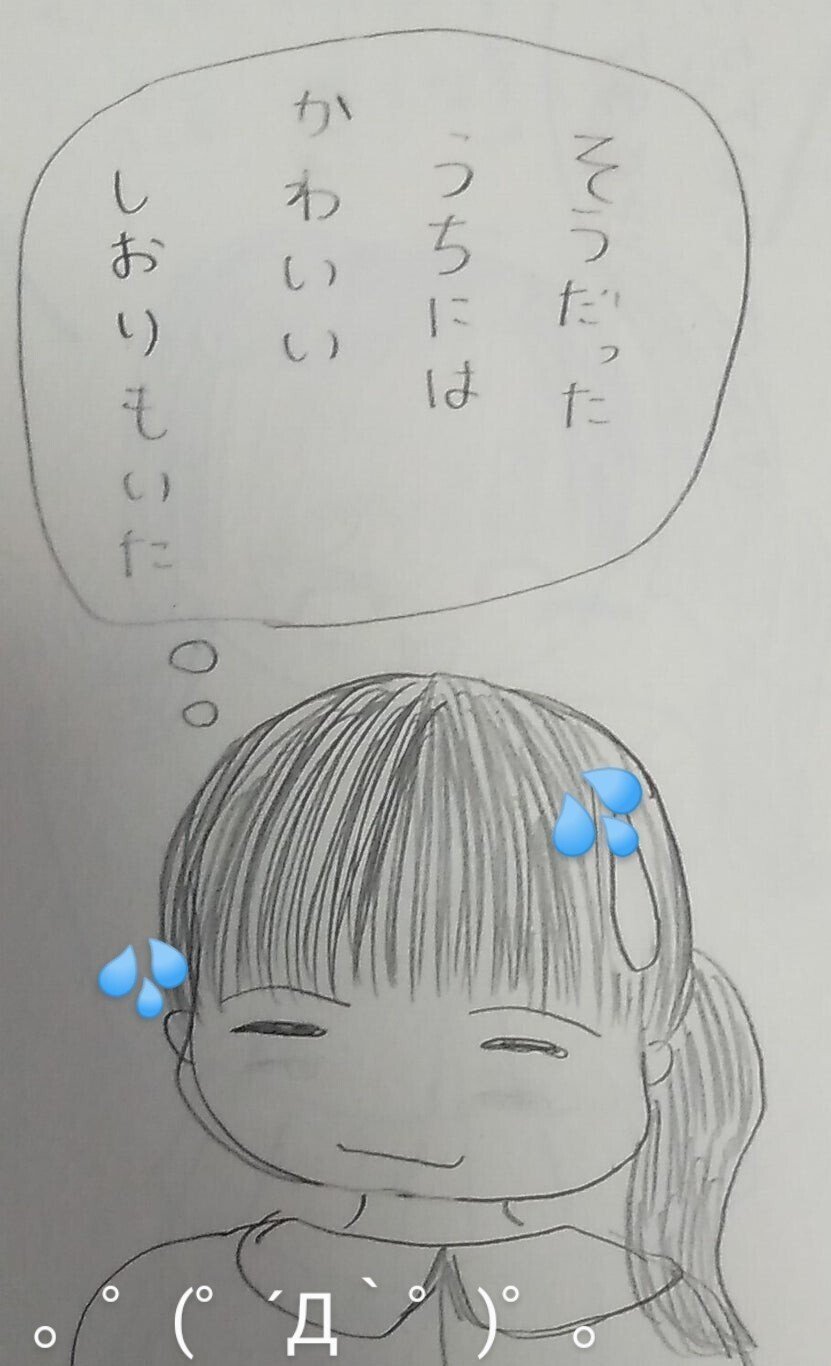 そうだった
うちには
かわいい
しおりもいた
。゜(゜´Д｀゜)゜。